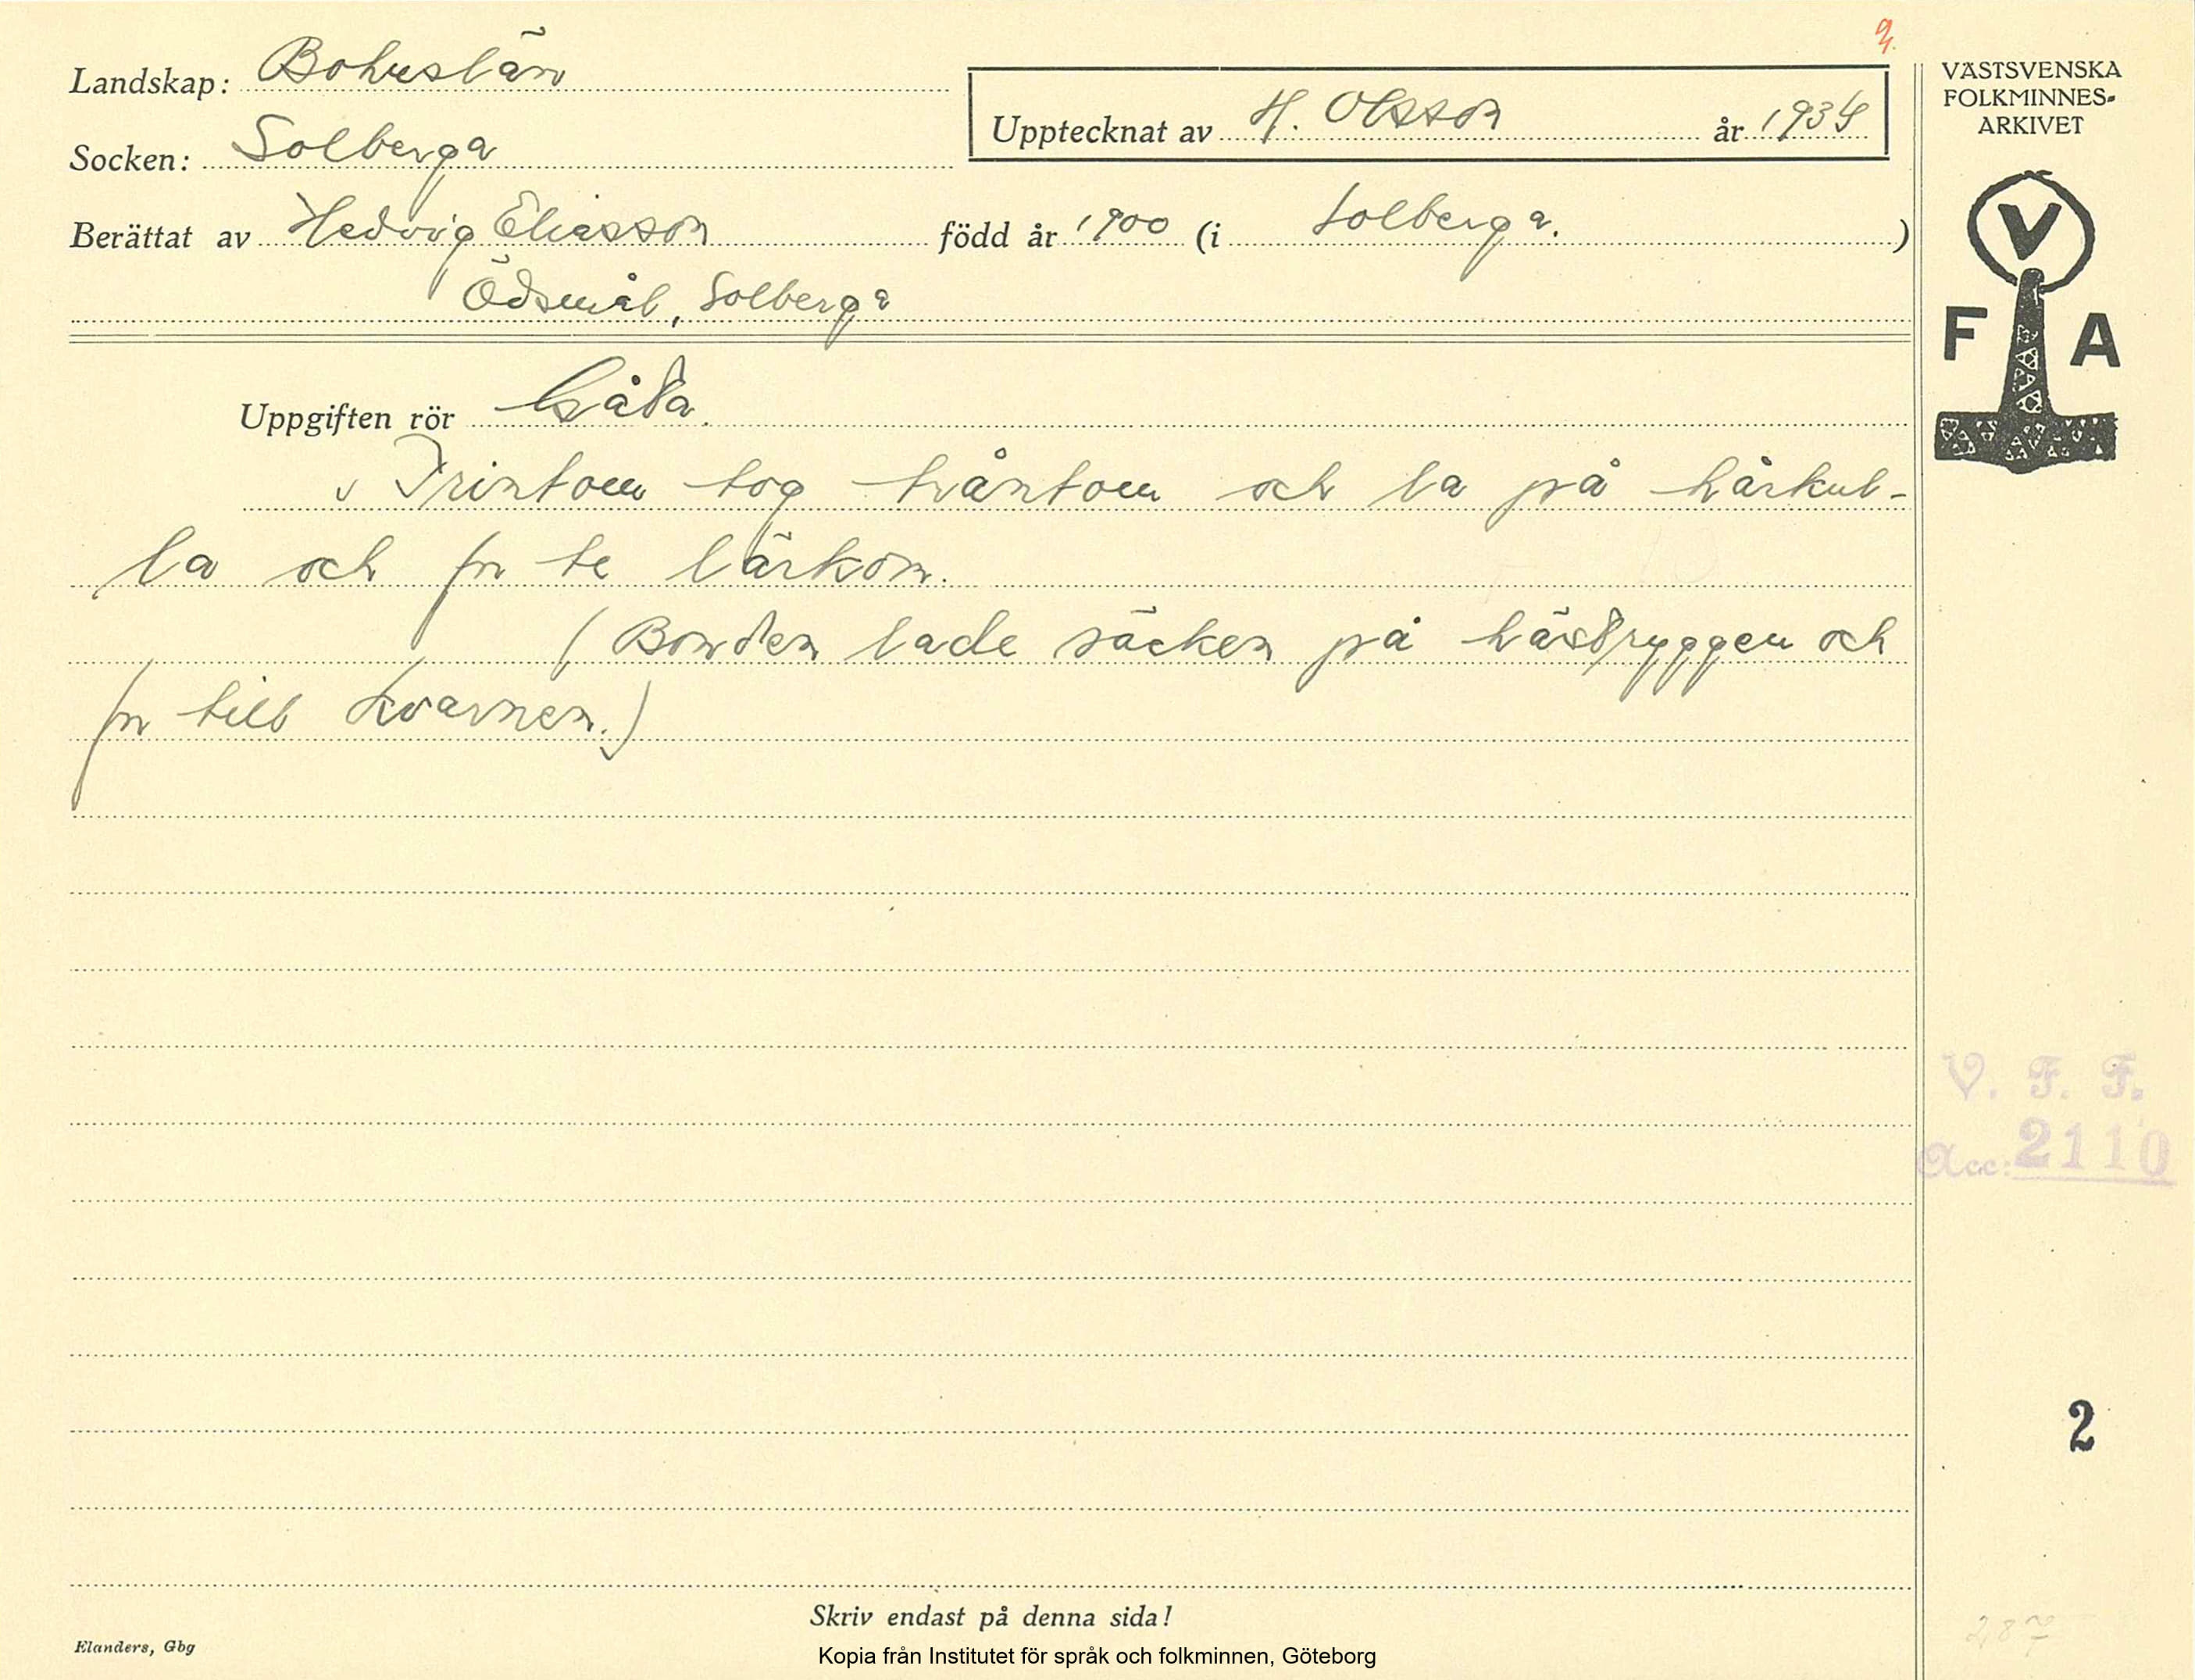 Landskap: Bohuslän
Socken: Solberga
Upptecknat av H. Olsson år 1934
Berättat av Hedvig Eliasson född år 1900 (i Solberga.)
Ödsmål, Solberga
Uppgiften rör Gåta.
Trintom tog tvåntom och la på hårkul-
la och for te lärkom.
(Bonden lade säcken på hästryggen och
for till kvarnen.)
VÄSTSVENSKA
FOLKMINNES-
ARKIVET
V
F A
V. F. F.
Acc: 2110
2
Skriv endast på denna sida!
Elanders, Gbg
Kopia från Institutet för språk och folkminnen, Göteborg